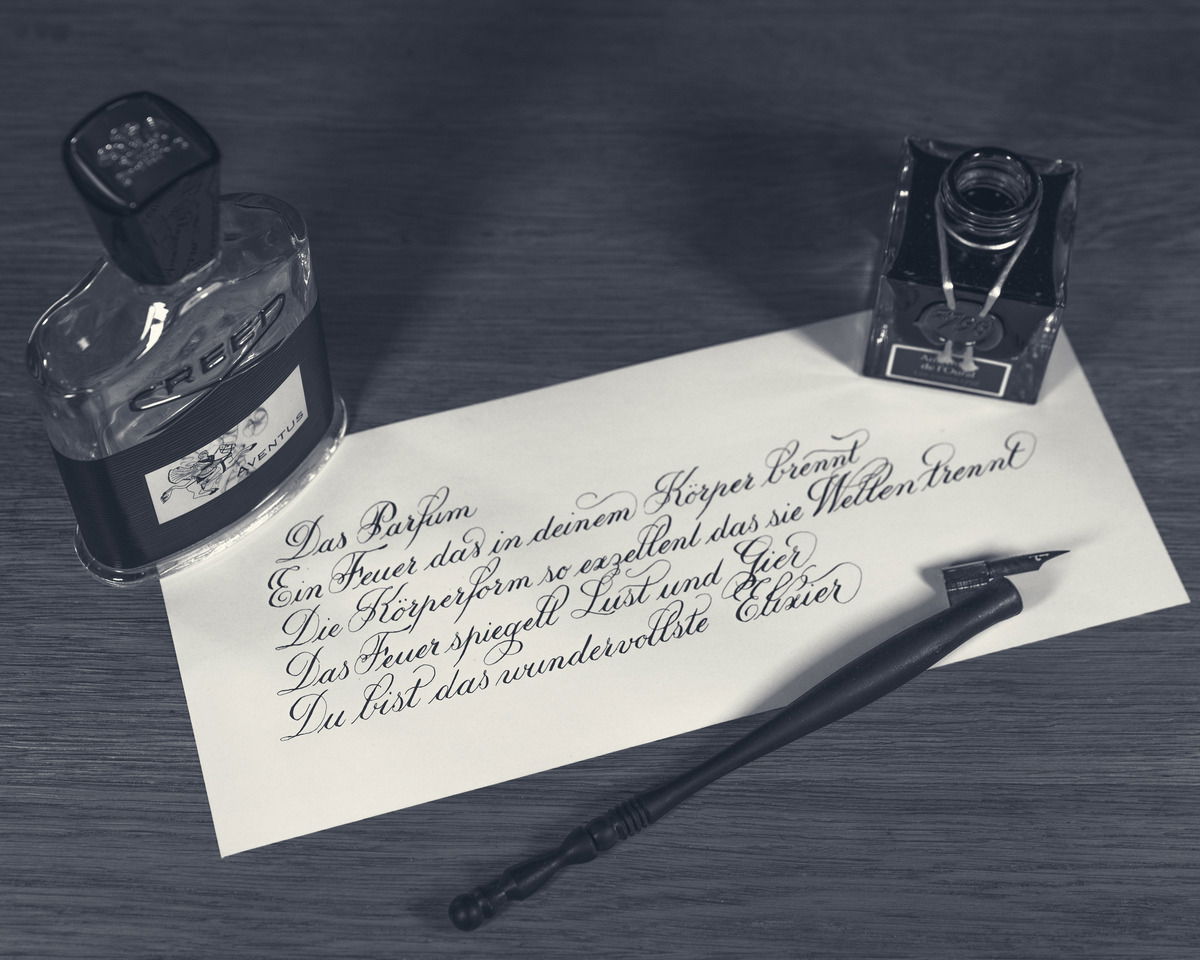 CREED
AVENTUS
de l'Oural
Das Parfum
Ein Feuer das in deinem Körper brennt
Die Körperform so exzellent das sie Wellen trennt
Das Feuer spiegelt Lust und Gier
Du bist das wundervollste Elixier